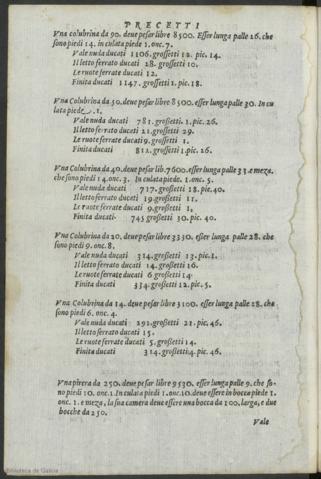 PRECETTI
Vna colubrina da 90. deue pesar libre 8500. Esser lunga palle 26. che
sono piedi 14. in culata piede 1. onc. 7.
Vale nuda ducati 1106. grossetti 12. pic. 14.
Il letto ferrato ducati 28. grossetti 10.
Le ruote ferrate ducati 12.
Finita ducati 1147. grossetti 1. pic. 18.
Vna Colubrina da 50. deue pesar libre 8500. esser lunga palle 30. In cu
lata piede 1.
Vale nuda ducati 781. grossetti. 1. pic. 26.
Il letto ferrato ducati 21. grossetti 29.
Le ruote ferrate ducati 9. grossetti 1.
Finita ducati 812. grossetti 1. pic. 26.
Vna Colubrina da 40. deue pesar lib. 7600. esser lunga palle 33 e meza.
che sono piedi 14. onc. 3. In culata piede. 1. onc. 5.
Vale nuda ducati 717. grossetti 18. pic. 40.
Il letto ferrato ducati 19. grossetti 11.
Le ruote ferrate ducati 9. grossetti 1.
Finita ducati. 745 grossetti 30. pic. 40.
Vna Colubrina da 20. deue pesar libre 3330. esser lunga palle 28. che
sono piedi 9. onc. 8.
Vale nuda ducati 314. grossetti 13. pic. 1.
Il letto ferrato ducati 14. grossetti 16.
Le ruote ferrate ducati 6 grossetti 14.
Finita ducati 334. grossetti 12. pic. 5.
Vna Colubrina da 14. deue pesar libre 3100. esser lunga palle 28. che
sono piedi 6. onc. 4.
Vale nuda ducati 291. grossetti 21. pic. 46.
Il letto ferrato ducati 15.
Le ruote ferrate ducati 5. grossetti 14.
Finita ducati 314. grossetti 4. pic. 46.
Vna pirera da 250. deue pesar libre 9530. esser lunga palle 9. che so-
no piedi 10. onc. 1. In culata piedi 1. onc. 10. deue essere in bocca piede 1.
onc. 1. e meza, la sua camera deue essere una bocca da 100. larga, e due
bocche da 250.
Vale
Biblioteca de Galicia